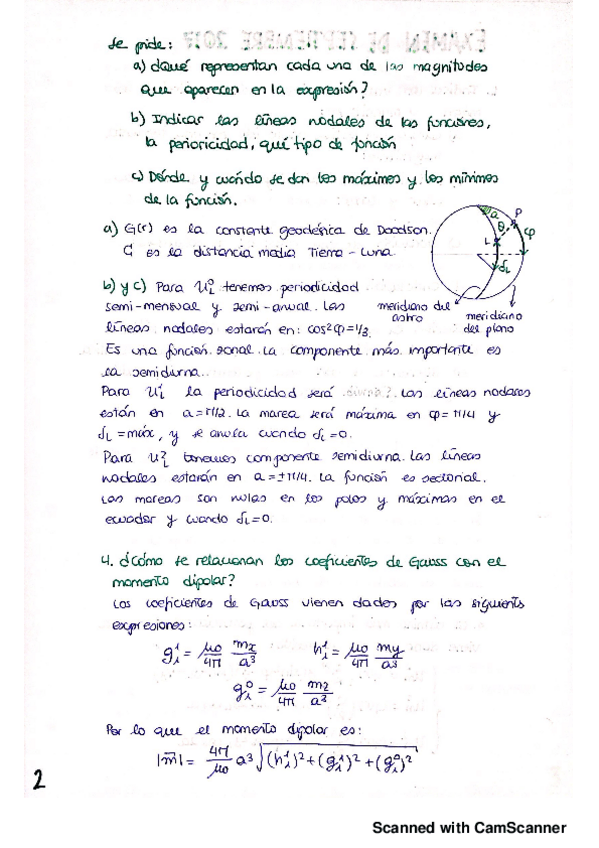 se pide:
a) ¿Qué representan cada una de las magnitudes
que aparecen en la expresión?
b) Indicar las líneas nodales de las funciones,
la perioricidad, qué tipo de función
c) Dónde y cuándo se dan los máximos y los mínimos
de la función.
a) G(r) es la constante geodésica de Doodson.
C es la distancia media Tierra - Luna.
a P
θ
L φ
δL
meridiano del
astro
meridiano
del plano
b) y c) Para U⁰L tenemos periodicidad
semi-mensual y semi-anual. Las
líneas nodales estarán en: cos²φ=1/3.
Es una función zonal. La componente más importante es
la semidiurna.
Para U¹L la periodicidad será ? Las líneas nodales
están en a=π/2. La marea será máxima en φ=π/4 y
δL=máx, y se anula cuando δL=0.
Para U²L tenemos componente semidiurna. Las líneas
nodales estarán en a=±π/4. La función es sectorial.
Las mareas son nulas en los polos y máximas en el
ecuador y cuando δL=0.
4. ¿Cómo se relacionan los coeficientes de Gauss con el
momento dipolar?
Los coeficientes de Gauss vienen dados por las siguients
expresiones:
g₁¹ = μ0/4π mx/a³ h₁¹ = μ0/4π my/a³
g₁⁰ = μ0/4π mz/a³
Por lo que el momento dipolar es:
|m̄| = 4π/μ0 a³ √(h₁¹)²+(g₁¹)²+(g₁⁰)²
2
Scanned with CamScanner